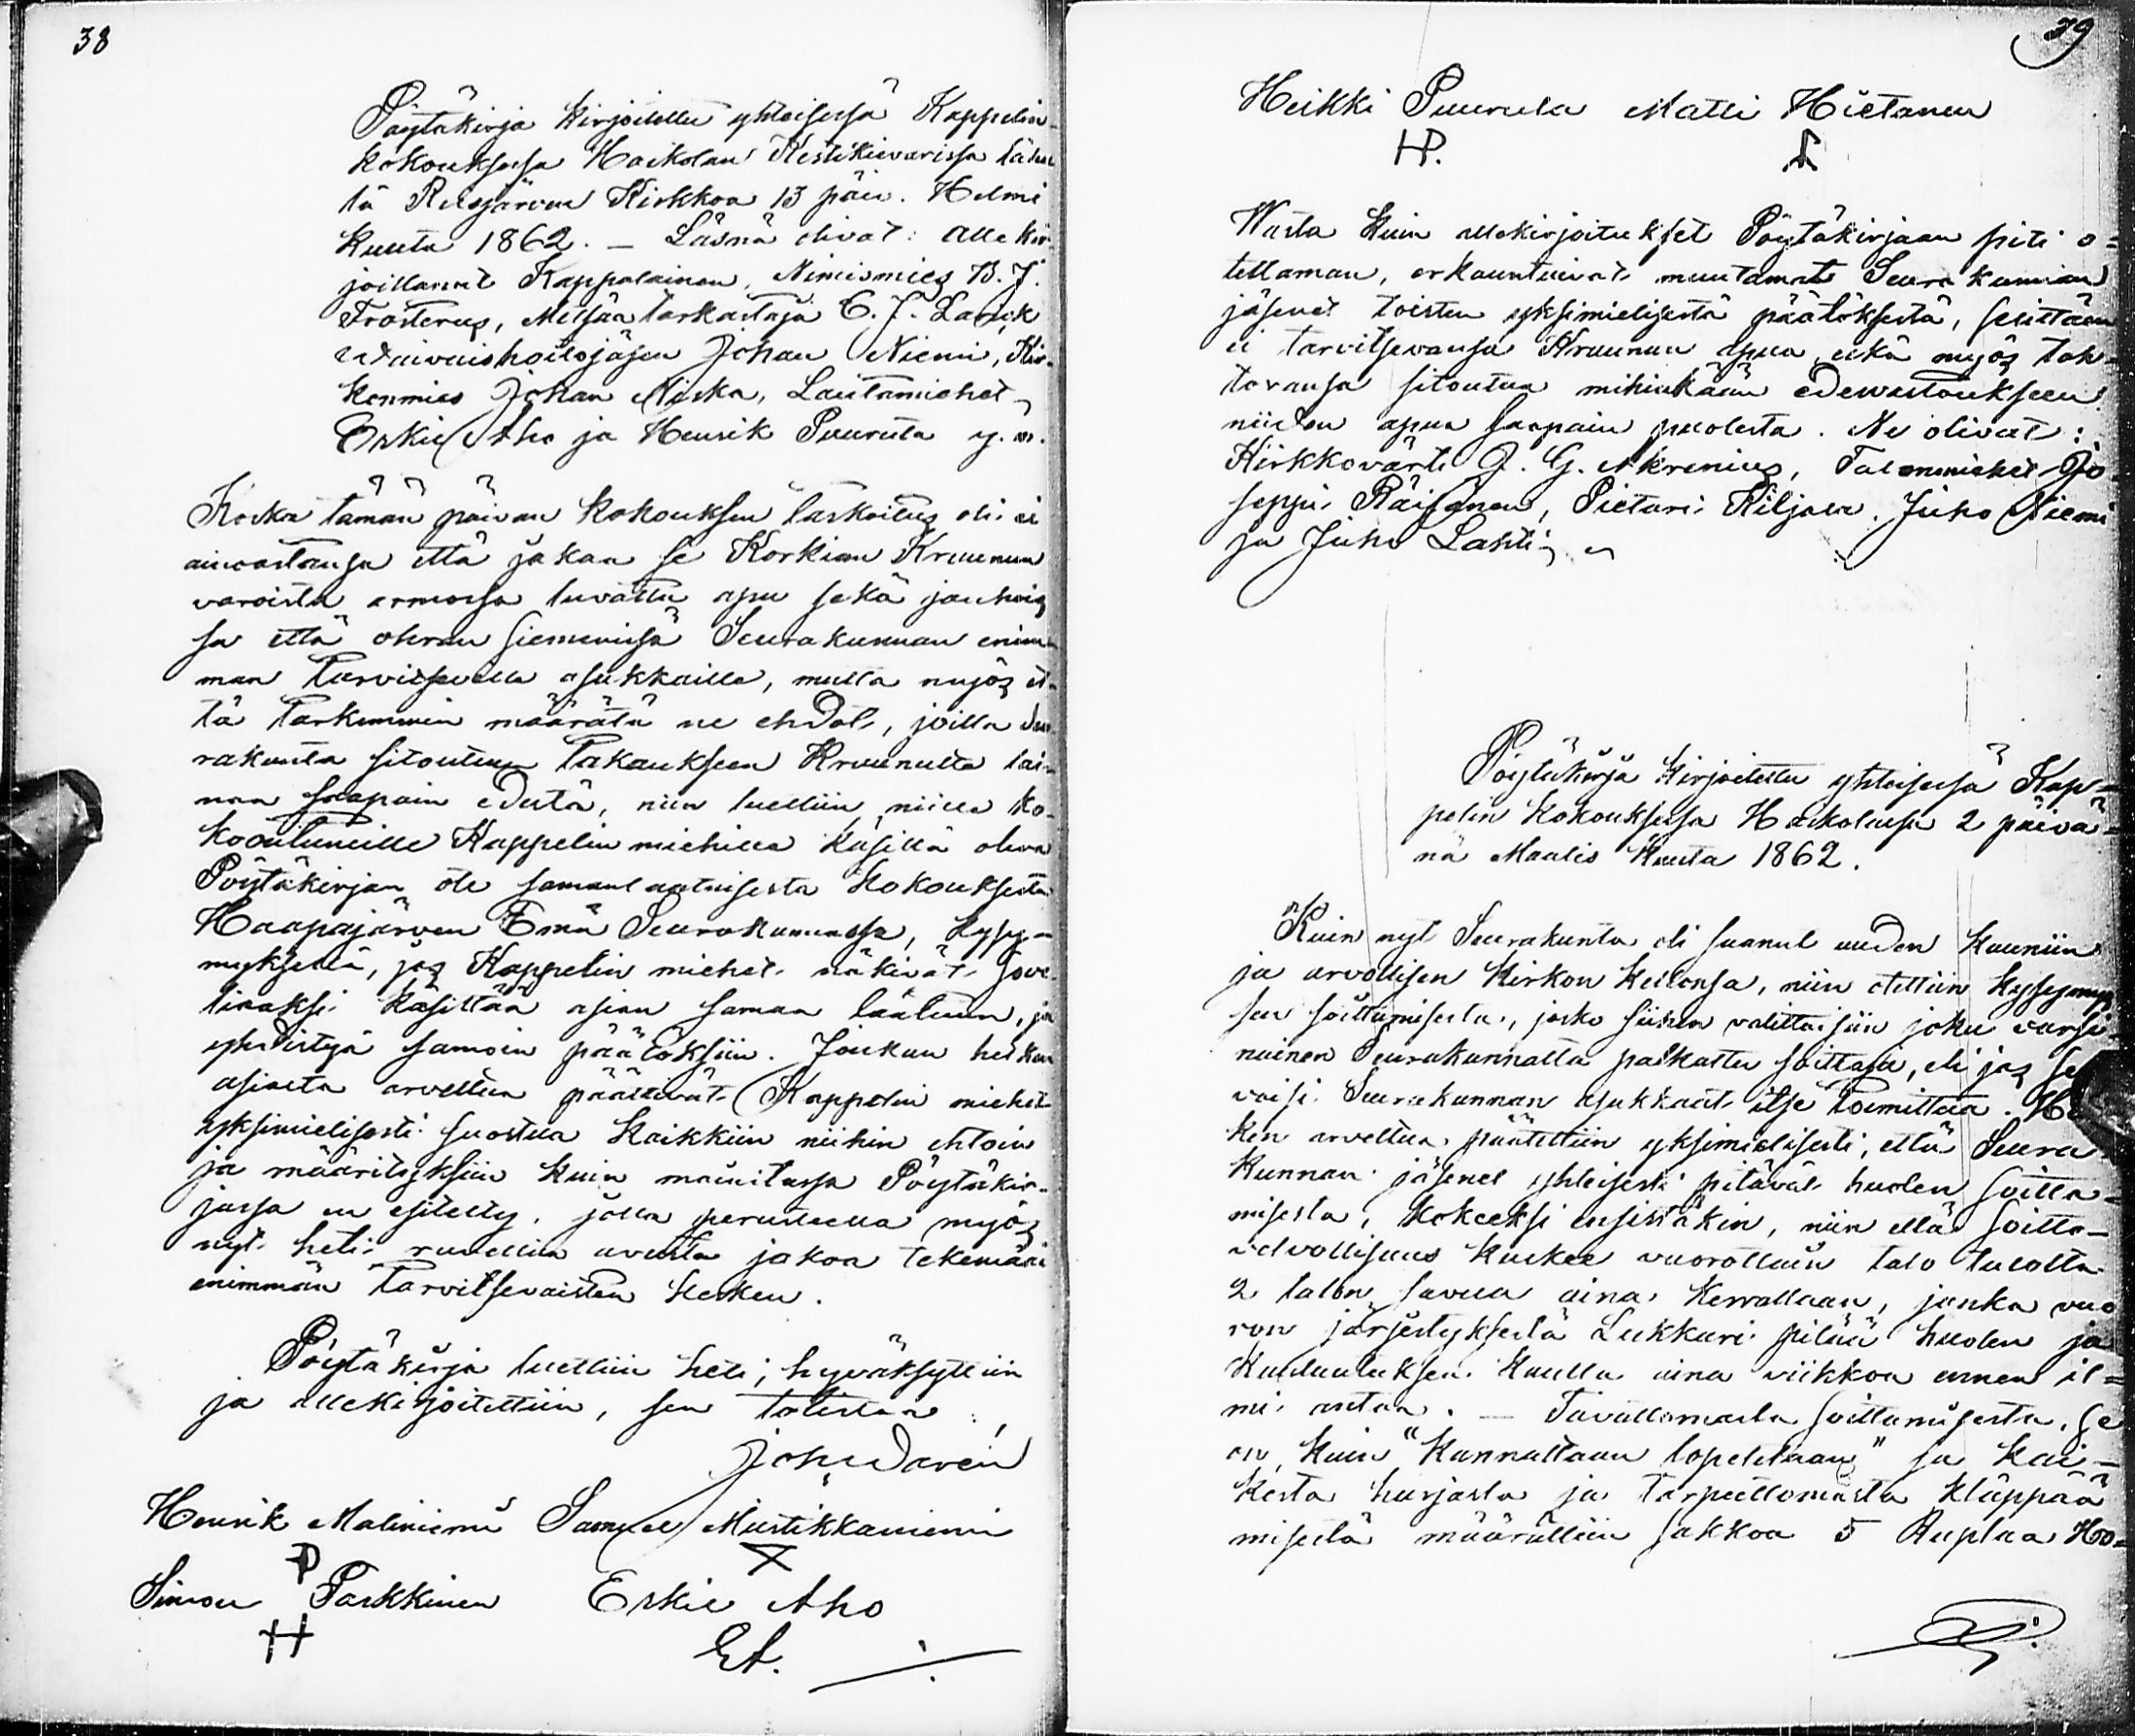 38
Pöytäkirja kirjoitettu yhteisessä Kappelin-
kokouksessa Haikolan Kestikievarissa lähel
lä Reisjärven Kirkkoa 13 päiv. Helmi
kuuta 1862. — Läsnä olivat: Allekir-
joittanut Kappalainen, Nimismies B. J.
Frosterus, Metsän tarkastaja C. J.
vaivaishoitojäsen Johan Niemi, Kir-
konmies Johan Niska, Lautamiehet
Erkki Aho ja Henrik Puurula y. m.
Koska tämän päivän kokouksen tarkoitus oli ei
ainoastansa että jakaa se Korkian Kruunun
varoista armossa luvattu apu sekä jauhois
sa että ohran siemenissä Seurakunnan enim-
män tarvitseville asukkaille, mutta myös et-
tä tarkemmin määrätä ne ehdot, joilla Seu-
rakunta sitoutuu takaukseen Kruunulta lai-
nan saapain edestä, niin luettiin niille ko-
koontuneille Kappelin miehille käsillä oleva
Pöytäkirjan ote samanlaatuisesta kokouksesta
Haapajärven Emä Seurakunnassa, kysy-
myksellä, jos Kappelin miehet näkivät sove-
liaaksi käsittää asian samaan laatuun, ja
yhdistyä samoin päätöksiin. Joukon hetken
asiasta arveltua päättivät Kappelin miehet
yksimielisesti suostua kaikkiin niihin ehtoin
ja määrityksiin kuin mainitussa Pöytäkir-
jassa on esitetty, jolla perusteella myös
nyt heti ruvettiin avusta jakoa tekemään
enimmän tarvitsevaisten kesken.
Pöytäkirja luettiin heti, hyväksyttiin
ja allekirjoitettiin, sen todistaa:
Joh. Daren
Henrik Maliniemi Samuel Mustikkaniemi
Simon Parkkinen Erkki Aho
EA.
39
Heikki Puurula Matti Hietanen
HP.
Wasta kuin allekirjoitukset Pöytäkirjaan piti o=
tettaman, erkauntuivat muutamat Seurakunnan
jäsenet toisten yksimielisestä päätöksestä, selittäen
ei tarvitsevansa Kruunun apua eikä myös tah-
tovansa sitoutua mihinkään edesvastaukseen
niiden apua saapain puolesta. Ne olivat:
Kirkkovärti J. G. Akrenius, Talonmiehet Jo
seppi Räisänen, Pietari Kiljala, Juho Niemi
ja Juho Lahti
Pöytäkirja kirjoitettu yhteisessä Kap=
pelin kokouksessa Haikolassa 2 päivä=
nä Maalis kuuta 1862.
Kuin nyt Seurakunta oli saanut uuden kauniin
ja arvollisen kirkon kellonsa, niin otettiin kysymys
sen soittamisesta, josko siihen valittaisiin joku varsi
nainen Seurakunnalta palkattu soittaja, eli jos se
voisi Seurakunnan asukkaat itse toimittaa. He
ken arveltua päätettiin yksimielisesti, että Seura
kunnan jäsenet yhteisesti pitävät huolen soitta=
misesta, kokeeksi ensistäkin, niin että soitto-
velvollisuus kulkee vuorottain talo talolta
2 talon savua aina kerrallaan, jonka vuo
ron järjestyksestä Lukkari pitää huolen ja
Kuulutuksen kautta aina viikkoa ennen il=
mi antaa. — Tavattomasta soittamisesta, se
on, kuin "Kannattaan lopetetaan" ja kai-
kesta hurjasta ja tarpeettomasta kläppää
misestä määrättiin sakkoa 5 Ruplaa Ho=